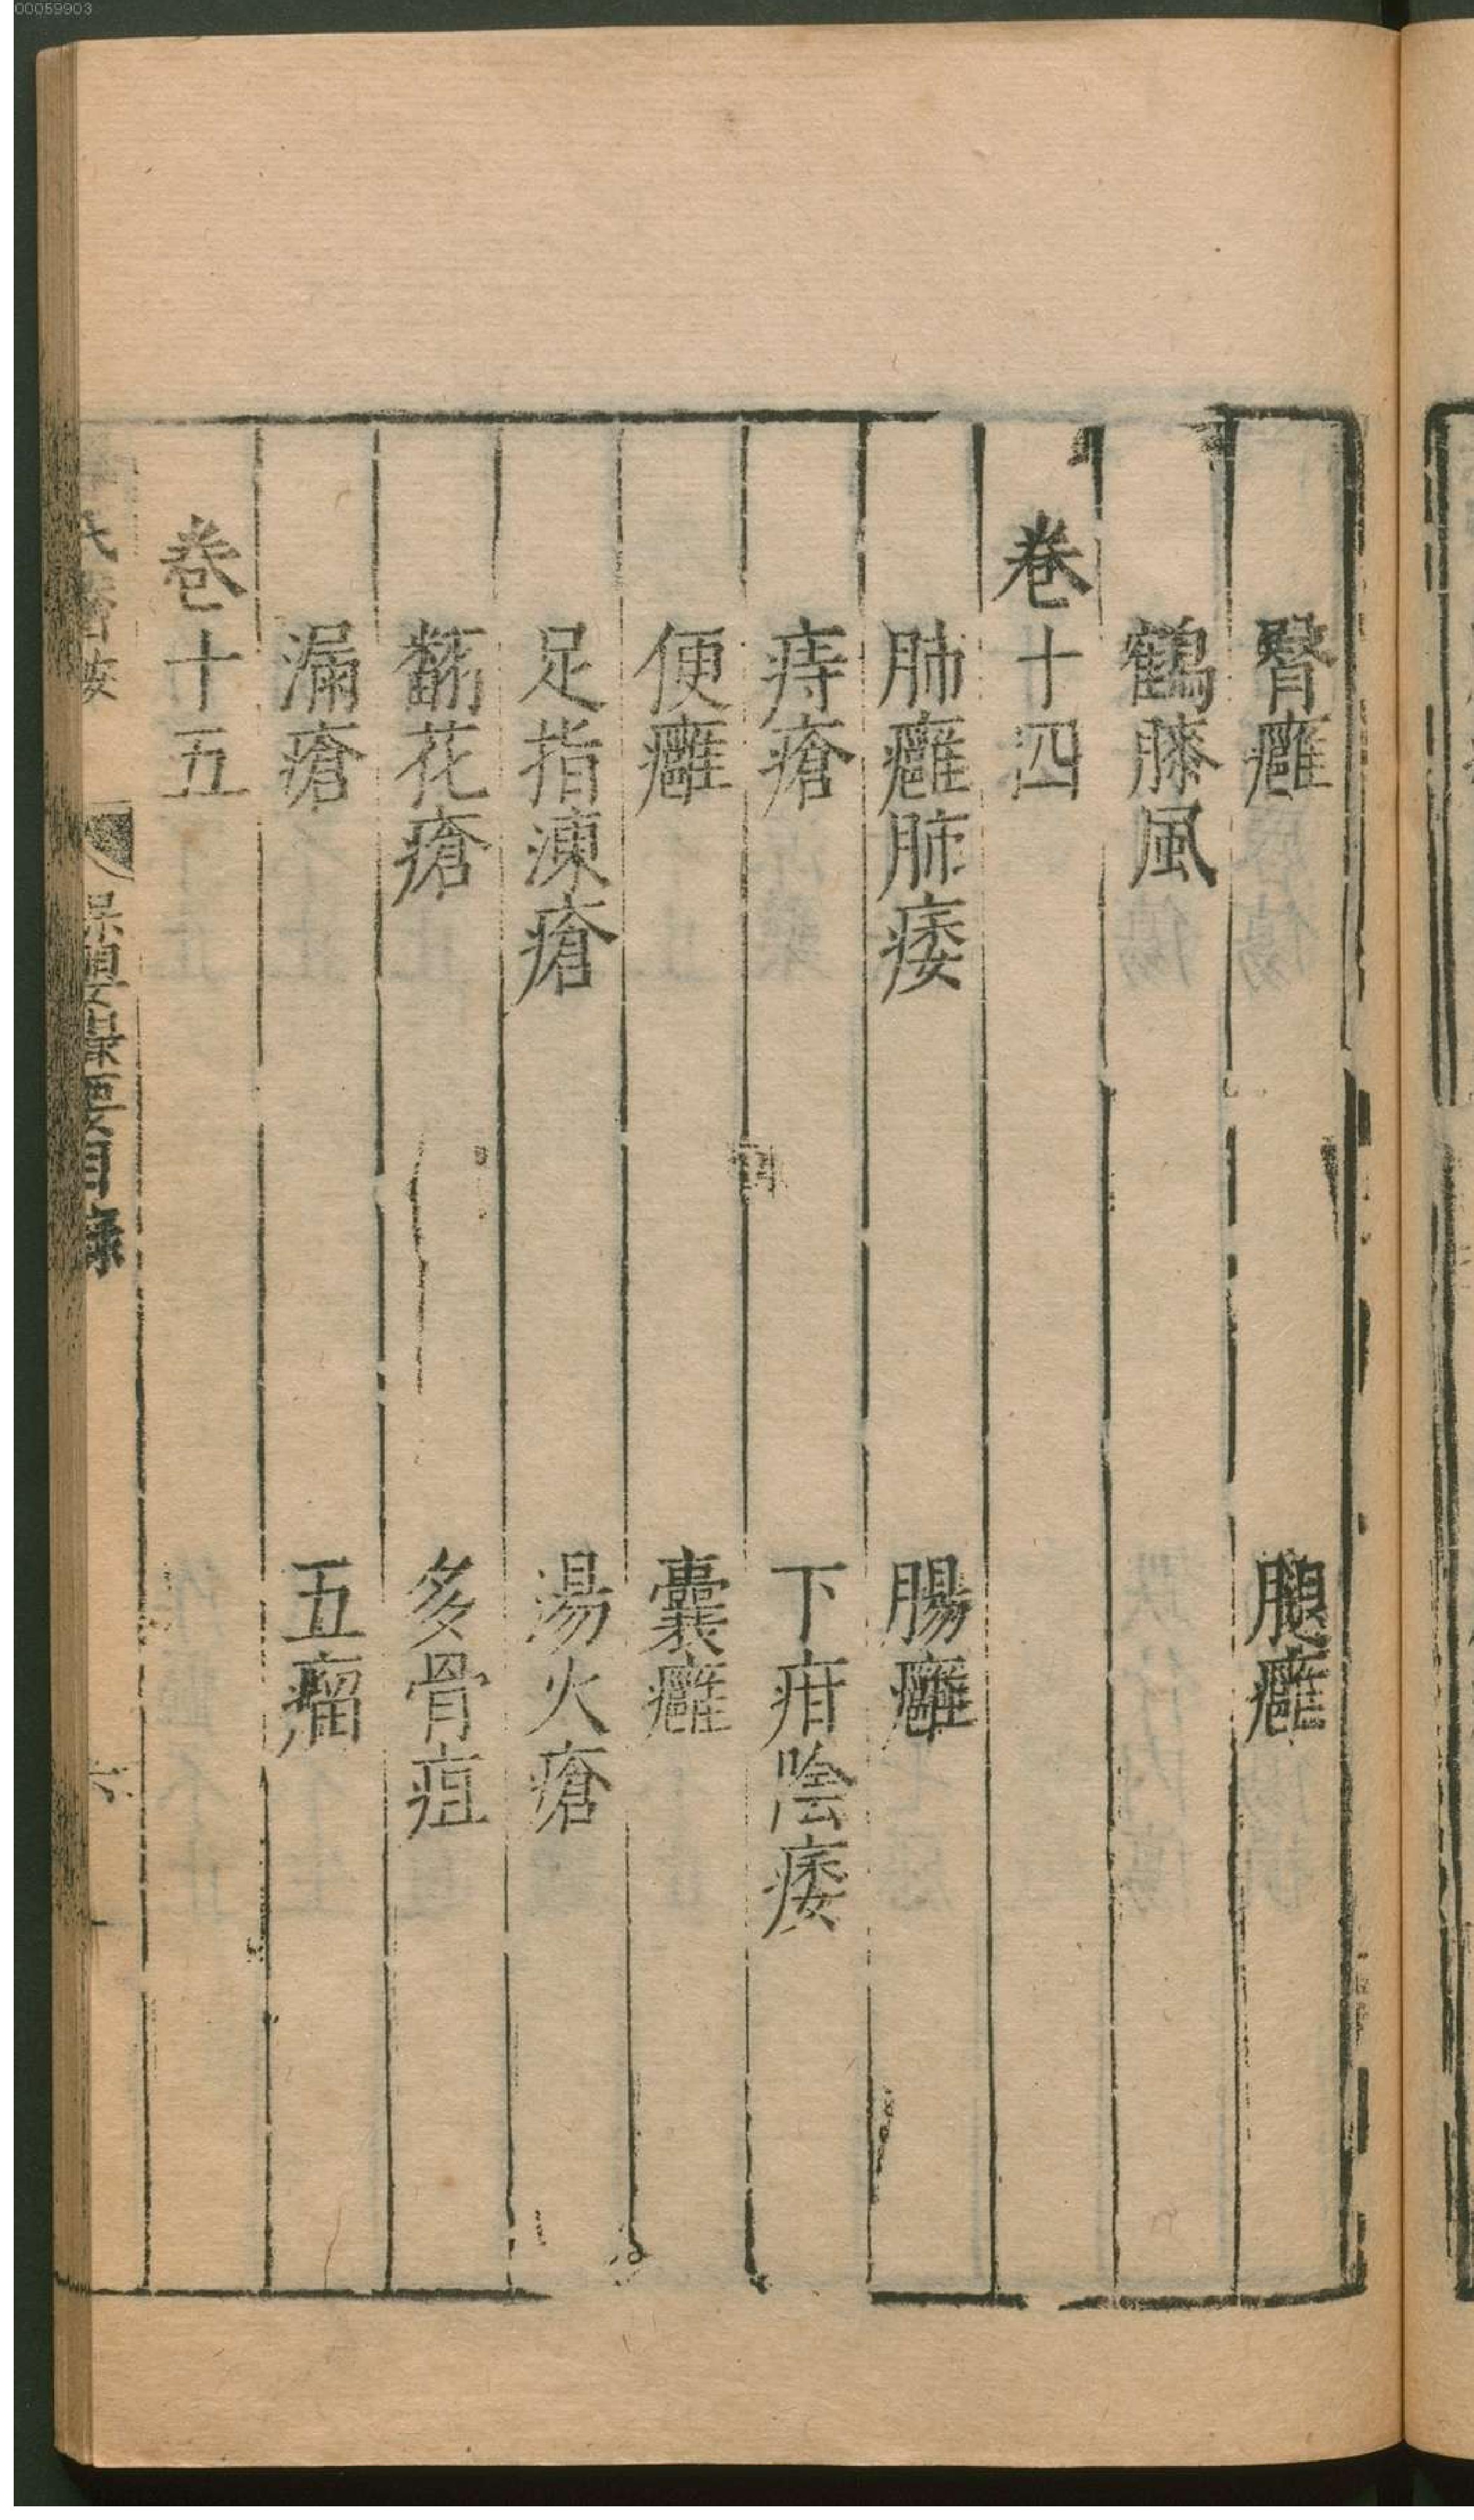 00059903
臀癰 腿癰
鶴膝風
卷十四
肺癰肺痿 腸癰
痔瘡 下疳陰痿
便癰 囊癰
足指凍瘡 湯火瘡
翻花瘡 多骨疽
漏瘡 五瘤
卷十五
保嬰撮要目錄 六